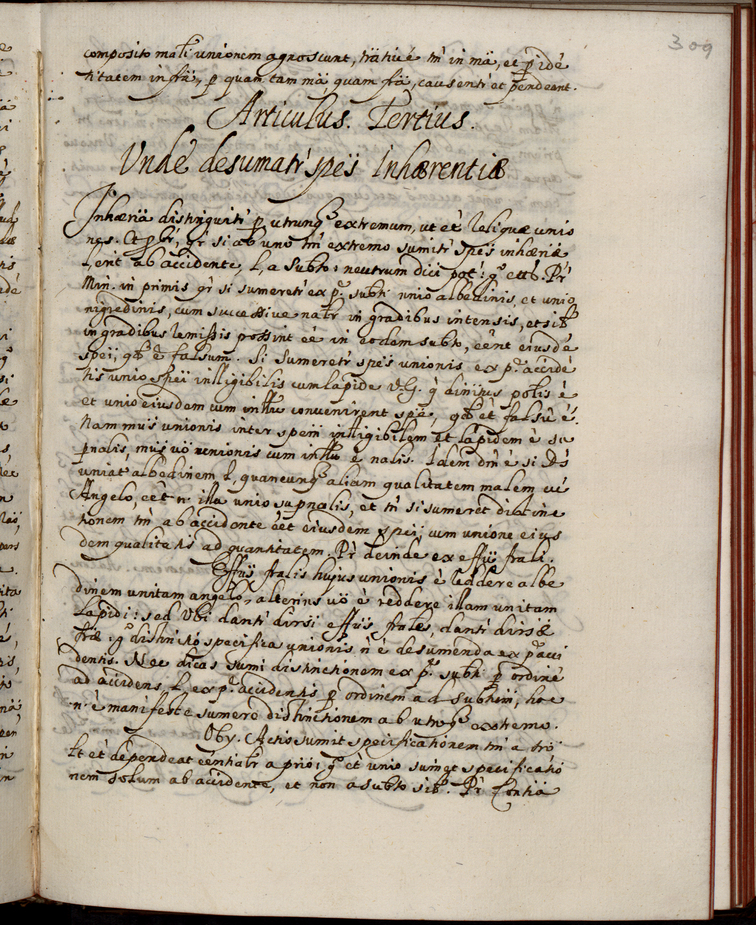 309
composito mãli unionem agnoscunt, tñ in mã, et p idẽ
titatem in frã, p quam tam mã quam frã, causentr et pendeant.
Articulus. Tertius.
Unde desumatr speïs Inhærentiæ
Inhæria distinguitr p utrumq extremum, ut et reliquæ unio
nes. Et pbr, qr si ab uno tm extremo sumitr speïs inhæriæ
l, erit ab accidente, l, a subto: neutrum dici pot: go etc. Pr
Min. in primis qr si sumeretr ex pe subti unio albedinis, et unio
nigredinis, cum successive natr in gradibus intensis, et sib
in gradibus remissis possint eẽ in eodam subto, eẽnt eiusdẽ
speï, qd ẽ falsum. Si sumeretr speïs unionis ex pe accidẽ
tis unio speï intligibilis cum lapide V.G. q dinïus potis ẽ
et unio eiusdem cum intllu convenirent spẽ, qd et falsũ ẽ.
Nam unionis inter speïm intligibilem et lapidem ẽ su
pnalis, vö unionis cum intllu ẽ nalis. Idem ẽ si Ds
uniat albedinem l, quamcunq aliam qualitatem malem
Angelo, eẽt n. illa unio supnalis, et tñ si sumeret distinc
tionem tm ab accidente eẽt eiusdem speï, cum unione eius
dem qualitatis ad quantitatem. Pr deinde ex effũ frali.
Effũs fralis hujus unionis ẽ reddere albe
dinem unitam angelo, alterius vö ẽ reddere illam unitam
lapidi: sed Ubi dantr dirsi effũs frales, dantr dirsæ
fræ: go distinctio specifica unionis ñ ẽ desumenda ex pe acci
dentis. Nec dicas sumi distinctionem ex pe subti p ordinẽ
ad accidens, l, ex pe accidentis p ordinem ad subtum, hoc
n. ẽ manifeste sumere distinctionem ab utroq extremo.
Oby. Actio sumit specificationem tm a tro
lt et dependeat eẽntialr a prio: go et unio sumet specificatio
nem solum ab accidente, et non a subto sib. Pr Contiã